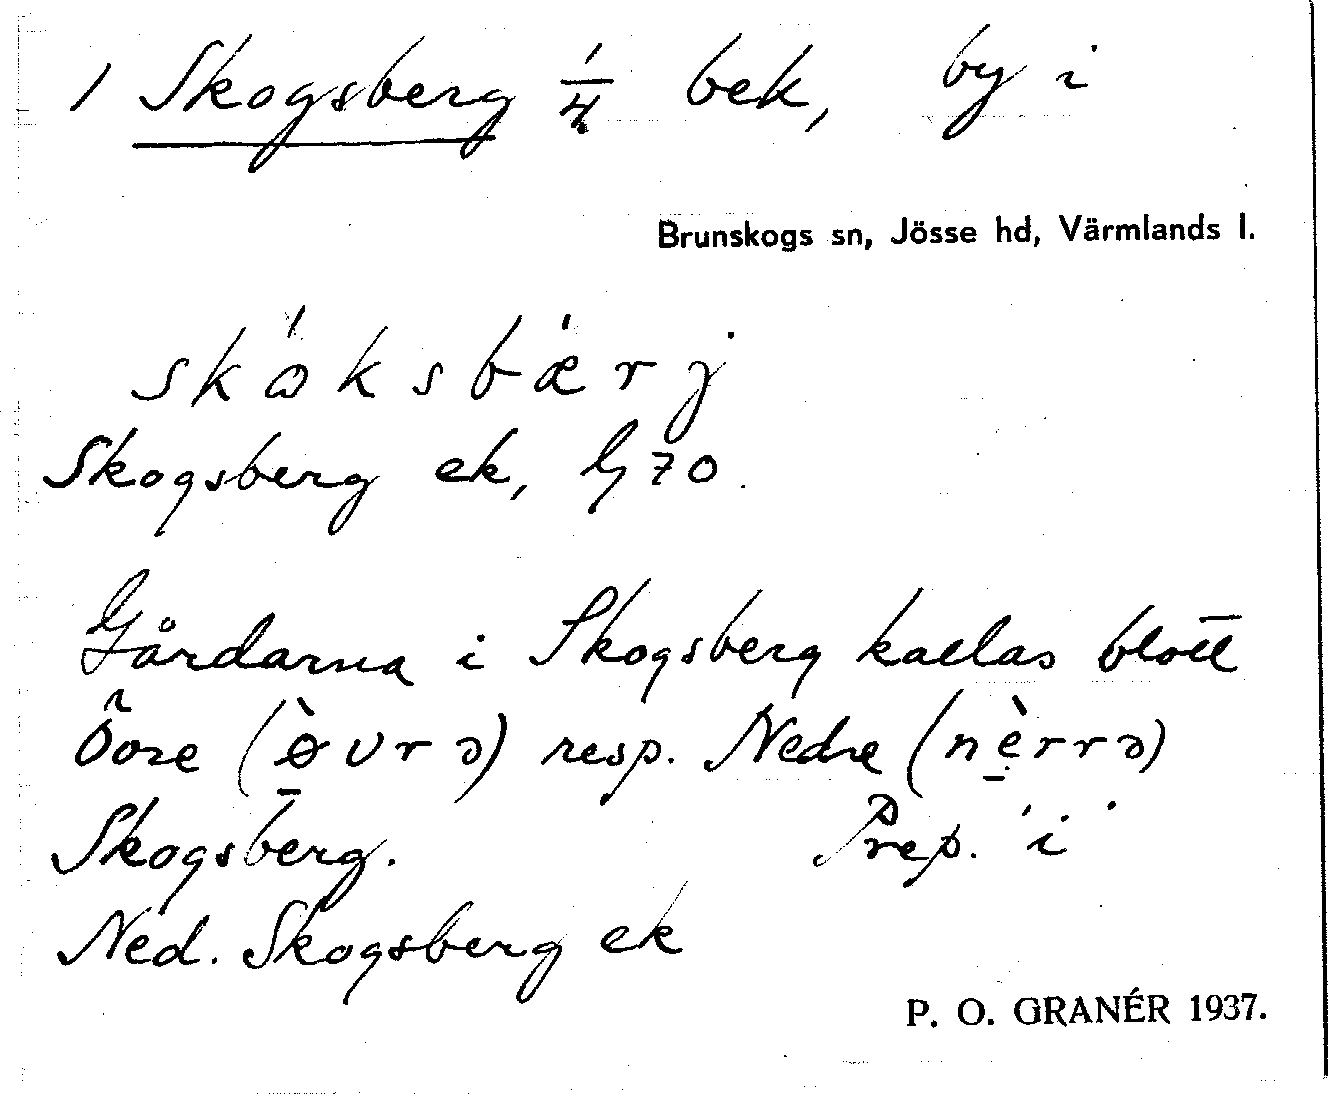 1 Skogsberg 1/4 bek, by i
Brunskogs sn, Jösse hd, Värmlands l.
skɷ́ksbǽrj
Skogsberg ek, G 70.
Gårdarna i Skogsberg kallas blott
Övre (ø̠̀vrə) resp. Nedre (nè̠rrə)
Skogsberg. Prep. 'i'
Ned. Skogsberg ek
P. O. GRANÉR 1937.